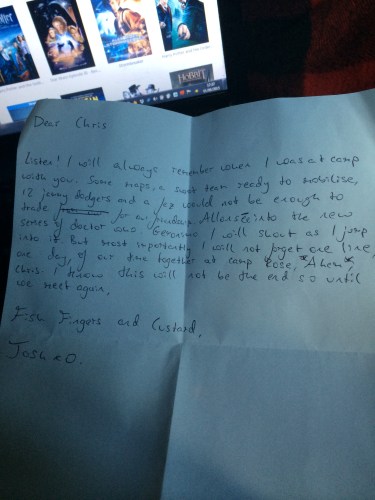 HOBBIT
Dear Chris
Listen! I will always remember when I was at camp
with you. Some maps, a scout team ready to mobilise,
12 jammy dodgers and a fez would not be enough to
trade for our into the new
series of doctor who. Geronimo I will shout as I jump
into it. But most importantly I will not forget one line,
one day, of our time together at camp Rose, *Ahem*,
Chris. I know this will not be the end so until
we meet again,
Fish Fingers and Custard,
Josh